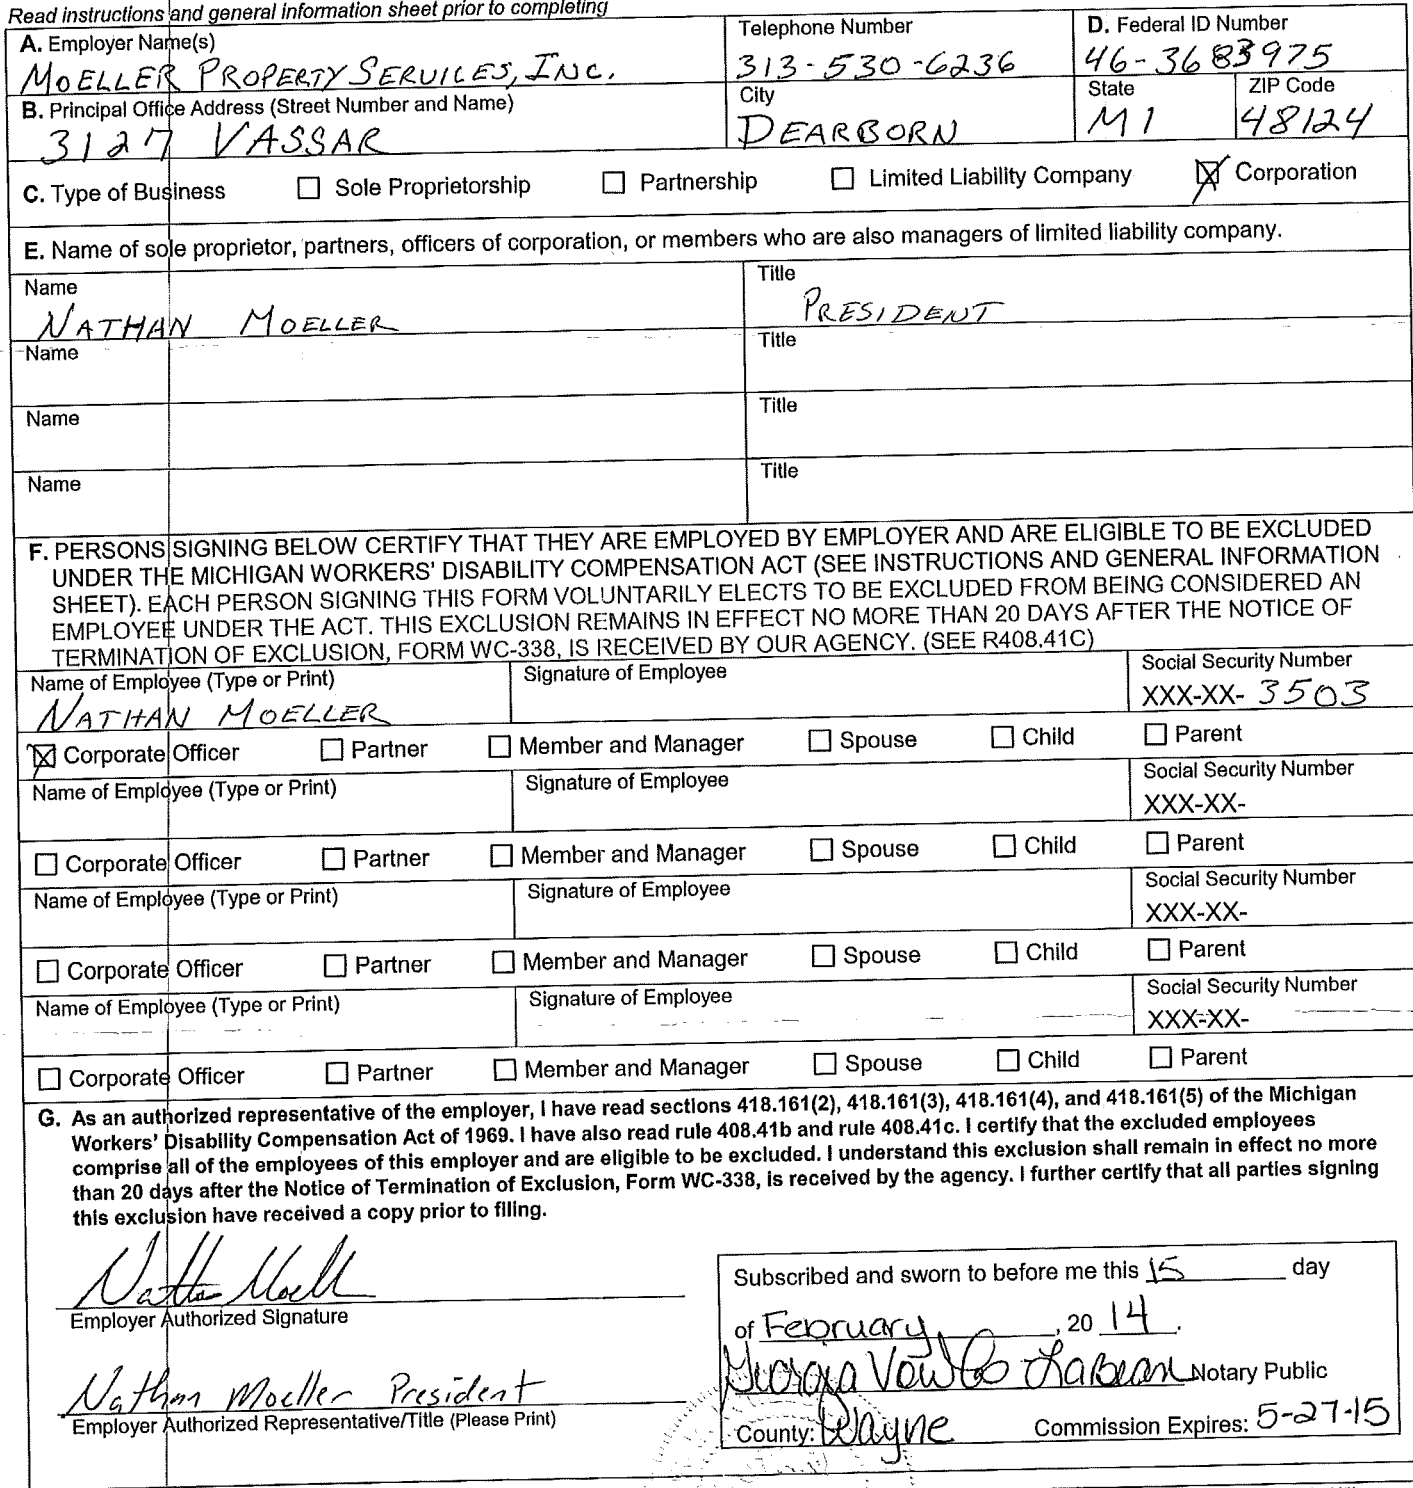 Read instructions and general information sheet prior to completing
A. Employer Name(s) Telephone Number D. Federal ID Number
MOELLER PROPERTY SERVICES, INC. 313-530-6236 46-3683975
B. Principal Office Address (Street Number and Name) City State ZIP Code
3127 VASSAR DEARBORN MI 48124
C. Type of Business ☐ Sole Proprietorship ☐ Partnership ☐ Limited Liability Company ☒ Corporation
E. Name of sole proprietor, partners, officers of corporation, or members who are also managers of limited liability company.
Name Title
NATHAN MOELLER PRESIDENT
Name Title
Name Title
Name Title
F. PERSONS SIGNING BELOW CERTIFY THAT THEY ARE EMPLOYED BY EMPLOYER AND ARE ELIGIBLE TO BE EXCLUDED
UNDER THE MICHIGAN WORKERS' DISABILITY COMPENSATION ACT (SEE INSTRUCTIONS AND GENERAL INFORMATION
SHEET). EACH PERSON SIGNING THIS FORM VOLUNTARILY ELECTS TO BE EXCLUDED FROM BEING CONSIDERED AN
EMPLOYEE UNDER THE ACT. THIS EXCLUSION REMAINS IN EFFECT NO MORE THAN 20 DAYS AFTER THE NOTICE OF
TERMINATION OF EXCLUSION, FORM WC-338, IS RECEIVED BY OUR AGENCY. (SEE R408.41C)
Name of Employee (Type or Print) Signature of Employee Social Security Number
NATHAN MOELLER XXX-XX- 3503
☒ Corporate Officer ☐ Partner ☐ Member and Manager ☐ Spouse ☐ Child ☐ Parent
Name of Employee (Type or Print) Signature of Employee Social Security Number
XXX-XX-
☐ Corporate Officer ☐ Partner ☐ Member and Manager ☐ Spouse ☐ Child ☐ Parent
Name of Employee (Type or Print) Signature of Employee Social Security Number
XXX-XX-
☐ Corporate Officer ☐ Partner ☐ Member and Manager ☐ Spouse ☐ Child ☐ Parent
Name of Employee (Type or Print) Signature of Employee Social Security Number
XXX-XX-
☐ Corporate Officer ☐ Partner ☐ Member and Manager ☐ Spouse ☐ Child ☐ Parent
G. As an authorized representative of the employer, I have read sections 418.161(2), 418.161(3), 418.161(4), and 418.161(5) of the Michigan
Workers' Disability Compensation Act of 1969. I have also read rule 408.41b and rule 408.41c. I certify that the excluded employees
comprise all of the employees of this employer and are eligible to be excluded. I understand this exclusion shall remain in effect no more
than 20 days after the Notice of Termination of Exclusion, Form WC-338, is received by the agency. I further certify that all parties signing
this exclusion have received a copy prior to filing.
Nathan Moell
Employer Authorized Signature
Nathan Moeller President
Employer Authorized Representative/Title (Please Print)
Subscribed and sworn to before me this 15 day
of February, 20 14.
Georgia LaBean Notary Public
County: Wayne Commission Expires: 5-27-15